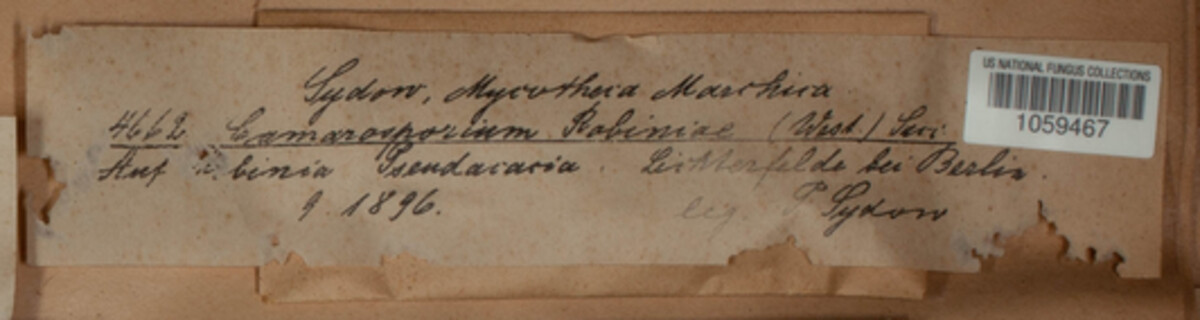 Sydow, Mycotheca Marchica
4662 Camarosporium Robiniae (West.) Sacc.
Auf Robinia Pseudacacia. Lichterfelde bei Berlin.
9. 1896. leg. P. Sydow
US NATIONAL FUNGUS COLLECTIONS
1059467